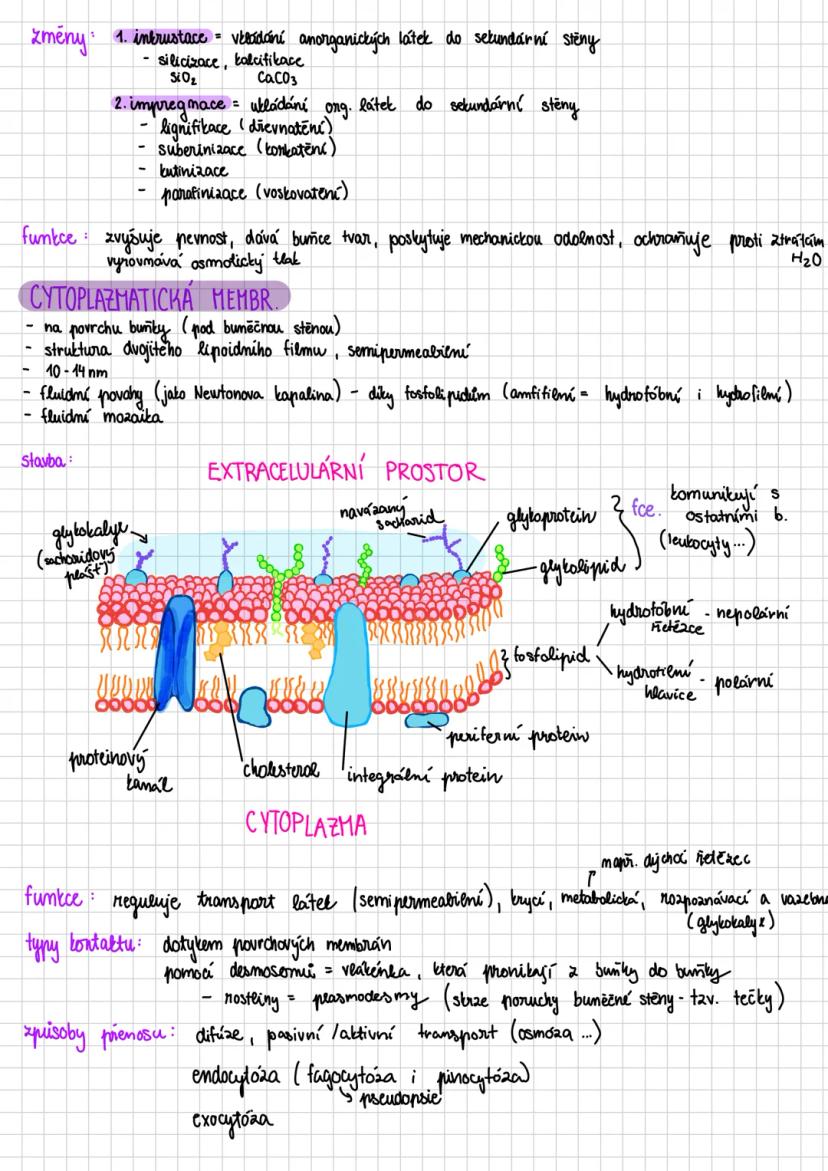 změny: 1. inkrustace = vkládání anorganických látek do sekundární stěny
- silicizace, kalcifikace
SiO₂ CaCO₃
2. impregnace = ukládání org. látek do sekundární stěny
- lignifikace (dřevnatění)
- suberinizace (korkatění)
- kutinizace
- parafinizace (voskovatění)
funkce: zvyšuje pevnost, dává buňce tvar, poskytuje mechanickou odolnost, ochraňuje proti ztrátám
vyrovnává osmotický tlak H₂O
CYTOPLAZMATICKÁ MEMBR.
- na povrchu buňky (pod buněčnou stěnou)
- struktura dvojitého lipoidního filmu, semipermeabilní
- 10-14 nm
- fluidní povahy (jako Newtonova kapalina) - díky fosfolipidům (amfifilní = hydrofóbní i hydrofilní)
- fluidní mozaika
stavba:
EXTRACELULÁRNÍ PROSTOR
glykokalyx
(sacharidový
plášť)
navázaný
sacharid
glykoprotein
glykolipid
fce. komunikují s
ostatními b.
(leukocyty...)
fosfolipid
hydrofobní - nepolární
řetězce
hydrofilní - polární
hlavice
periferní protein
proteinový
kanál
cholesterol
integrální protein
CYTOPLAZMA
např. dýchací řetězec
funkce: reguluje transport látek (semipermeabilní), krycí, metabolická, rozpoznávací a vazebná
(glykokalyx)
typy kontaktu: dotykem povrchových membrán
pomocí desmosomů = vlákénka, která pronikají z buňky do buňky
- rostliny = plasmodesmy (skrze poruchy buněčné stěny - tzv. tečky)
způsoby přenosu: difúze, pasivní/aktivní transport (osmóza ...)
endocytóza (fagocytóza i pinocytóza)
pseudopsie
exocytóza